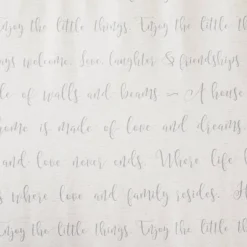 Enjoy the little things. Enjoy the little th
ys welcome. Love, laughter & friendships
le of walls and beams ~ A house
home is made of love and dreams.
and love never ends. Where life b
s where love and family resides. H
Enjoy the little things. Enjoy the little th